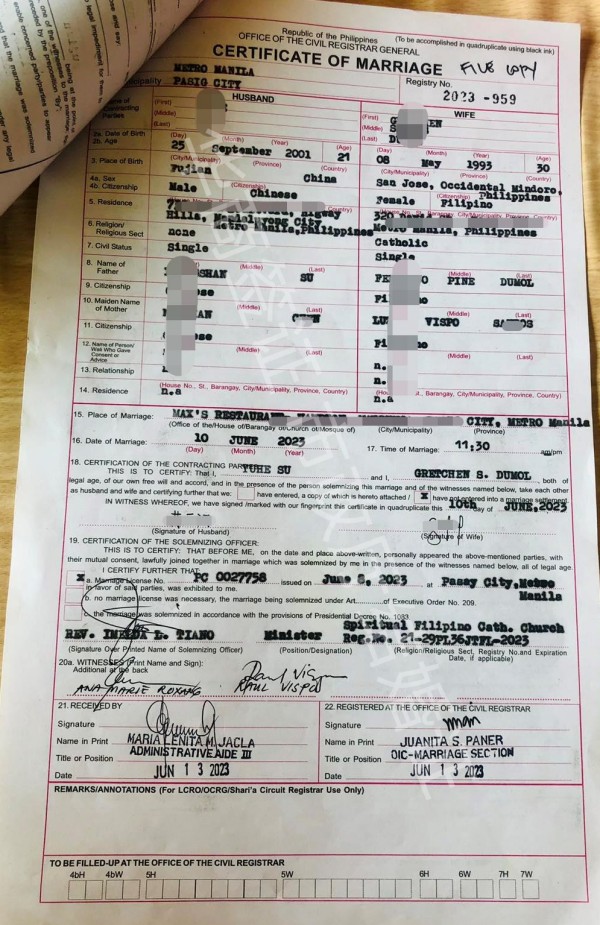 Republic of the Philippines
(To be accomplished in quadruplicate using black ink)
OFFICE OF THE CIVIL REGISTRAR GENERAL
CERTIFICATE OF MARRIAGE
FILE COPY
METRO MANILA
PASIG CITY
Registry No.
2023 -959
Contracting Parties
HUSBAND
WIFE
(First)
(Middle)
(Last)
(First)
(Middle)
(Last)
2a. Date of Birth
2b. Age
(Day) (Month) (Year) (Age)
25 September 2001 21
(Day) (Month) (Year) (Age)
08 May 1993 30
3. Place of Birth
(City/Municipality) (Province) (Country)
Fujian China
(City/Municipality) (Province) (Country)
San Jose, Occidental Mindoro, Philippines
4a. Sex
4b. Citizenship
Male (Citizenship) Chinese
Female (Citizenship) Filipino
5. Residence
Hills, Mandaluyong City
Metro Manila, Philippines
Metro Manila, Philippines
6. Religion/
Religious Sect
none
Catholic
7. Civil Status
Single
Single
8. Name of
Father
(Middle) (Last)
SHAN SU
(Middle) (Last)
PINE DUMOL
9. Citizenship
10. Maiden Name
of Mother
(Middle) (Last)
(Middle) (Last)
VISPO SANTOS
11. Citizenship
12. Name of Person/
Who Gave
Consent or
Advice
(Middle) (Last)
(Middle) (Last)
13. Relationship
14. Residence
(House No., St., Barangay, City/Municipality, Province, Country)
n.a
St., Barangay, City/Municipality, Province, Country)
n.a
15. Place of Marriage:
MAX'S RESTAURANT
CITY, METRO Manila
(Office of the/House of/Barangay of/Church of/Mosque of) (City/Municipality) (Province)
16. Date of Marriage: 10 JUNE 2023
(Day) (Month) (Year)
17. Time of Marriage: 11:30 am/pm
18. CERTIFICATION OF THE CONTRACTING PARTIES
THIS IS TO CERTIFY: That I, YUHE SU and I, GRETCHEN S. DUMOL, both of
legal age, of our own free will and accord, and in the presence of the person solemnizing this marriage and of the witnesses named below, take each other
as husband and wife and certifying further that we: have entered, a copy of which is hereto attached / X have not entered into a marriage settlement
IN WITNESS WHEREOF, we have signed /marked with our fingerprint this certificate in quadruplicate this 10th day of JUNE,2023
(Signature of Husband) (Signature of Wife)
19. CERTIFICATION OF THE SOLEMNIZING OFFICER:
THIS IS TO CERTIFY: THAT BEFORE ME, on the date and place above-written, personally appeared the above-mentioned parties, with
their mutual consent, lawfully joined together in marriage which was solemnized by me in the presence of the witnesses named below, all of legal age.
I CERTIFY FURTHER THAT:
X a. Marriage License No. PC 0027758 issued on June 8, 2023 at Pasay City, Metro Manila
in favor of said parties, was exhibited to me.
b. no marriage license was necessary, the marriage being solemnized under Art. of Executive Order No. 209.
c. the marriage was solemnized in accordance with the provisions of Presidential Decree No. 1083.
REV. IMELDA L. TIANO
Minister
Spiritual Filipino Cath. Church
Reg.No. 21-29PL36JTFL-2023
(Signature Over Printed Name of Solemnizing Officer) (Position/Designation) (Religion/Religious Sect, Registry No.and Expiration Date, if applicable)
20a. WITNESSES (Print Name and Sign):
Additional at the back
ANA MARIE ROXANO
RAUL VISPO
21. RECEIVED BY
Signature
Name in Print MARIA LENITA M. JACLA
Title or Position ADMINISTRATIVE AIDE III
Date JUN 13 2023
22. REGISTERED AT THE OFFICE OF THE CIVIL REGISTRAR
Signature
Name in Print JUANITA S. PANER
Title or Position OIC-MARRIAGE SECTION
Date JUN 13 2023
REMARKS/ANNOTATIONS (For LCRO/OCRG/Shari'a Circuit Registrar Use Only)
TO BE FILLED-UP AT THE OFFICE OF THE CIVIL REGISTRAR
4bH 4bW 5H 5W 6H 6W 7H 7W